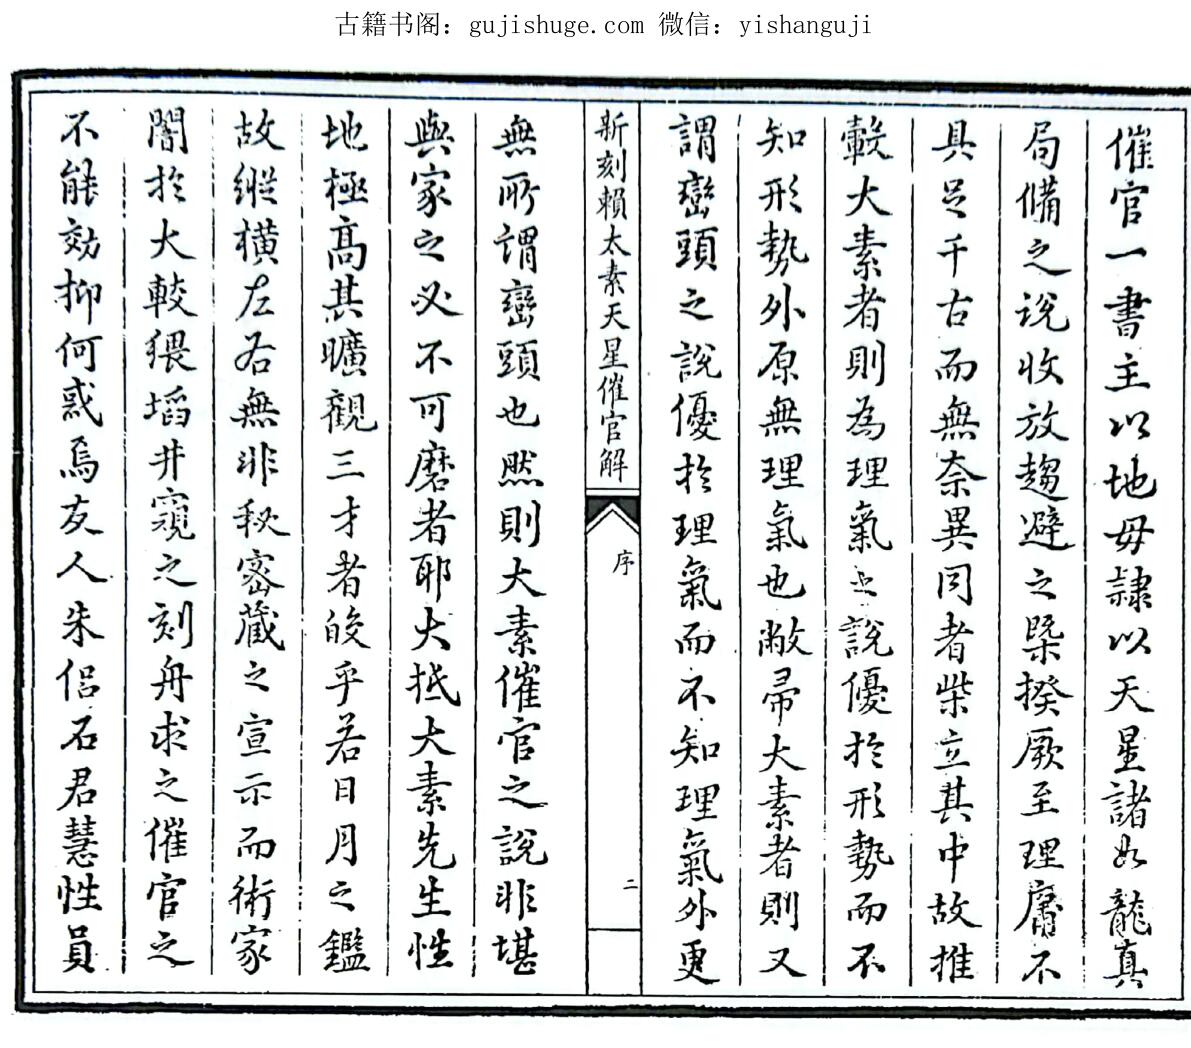 古籍书阁：gujishuge.com 微信：yishanguji
催官一書主以地毋隷以天星諸如龍真
局備之说收放趨避之槩揆厥至理靡不
具足千古而無奈異同者柴立其中故推
轂大素者則為理氣之說優於形勢而不
知形勢外原無理氣也敝帚大素者則又
謂巒頭之說優於理氣而不知理氣外更
新刻賴太素天星催官解
序
二
無所謂巒頭也然則大素催官之說非堪
與家之必不可磨者耶大抵大素先生性
地極高其曠觀三才者皎乎若日月之鑑
故縱橫左右無非秘密藏之宣示而術家
闇於大較猥蹈井窺之刻舟求之催官之
不能効抑何惑焉友人朱侣石君慧性員